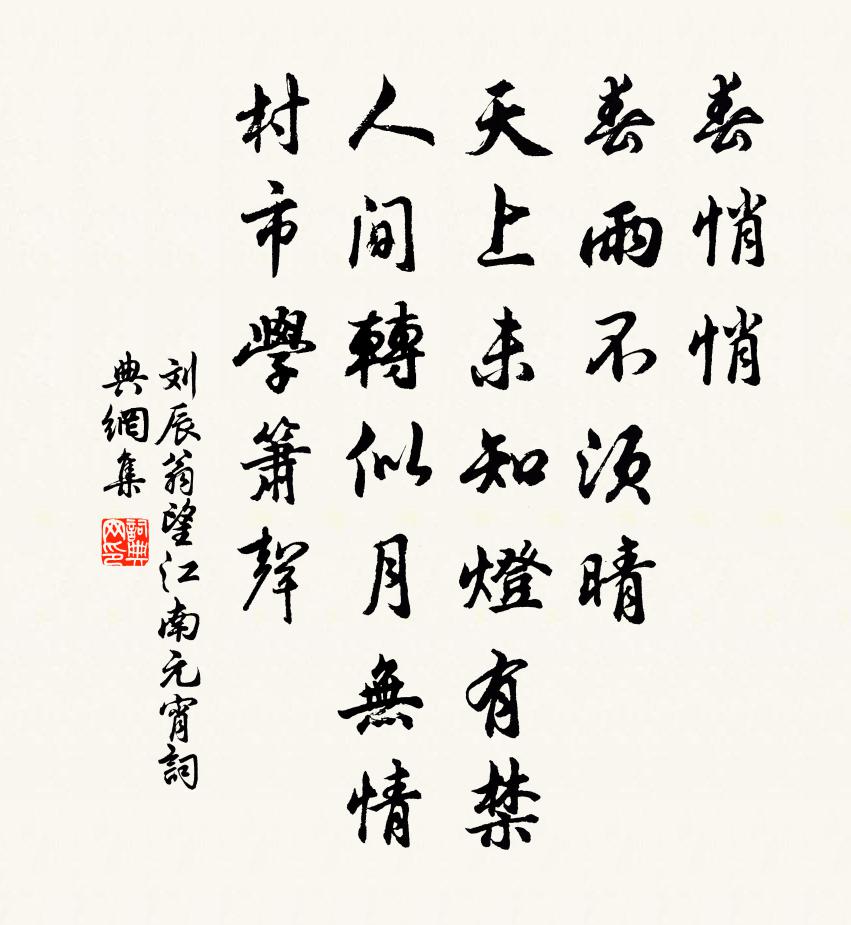 春悄悄
春雨不須晴
天上未知燈有禁
人间轉似月無情
村市學簫聲
刘辰翁望江南元宵詞
典網集
詞典网印